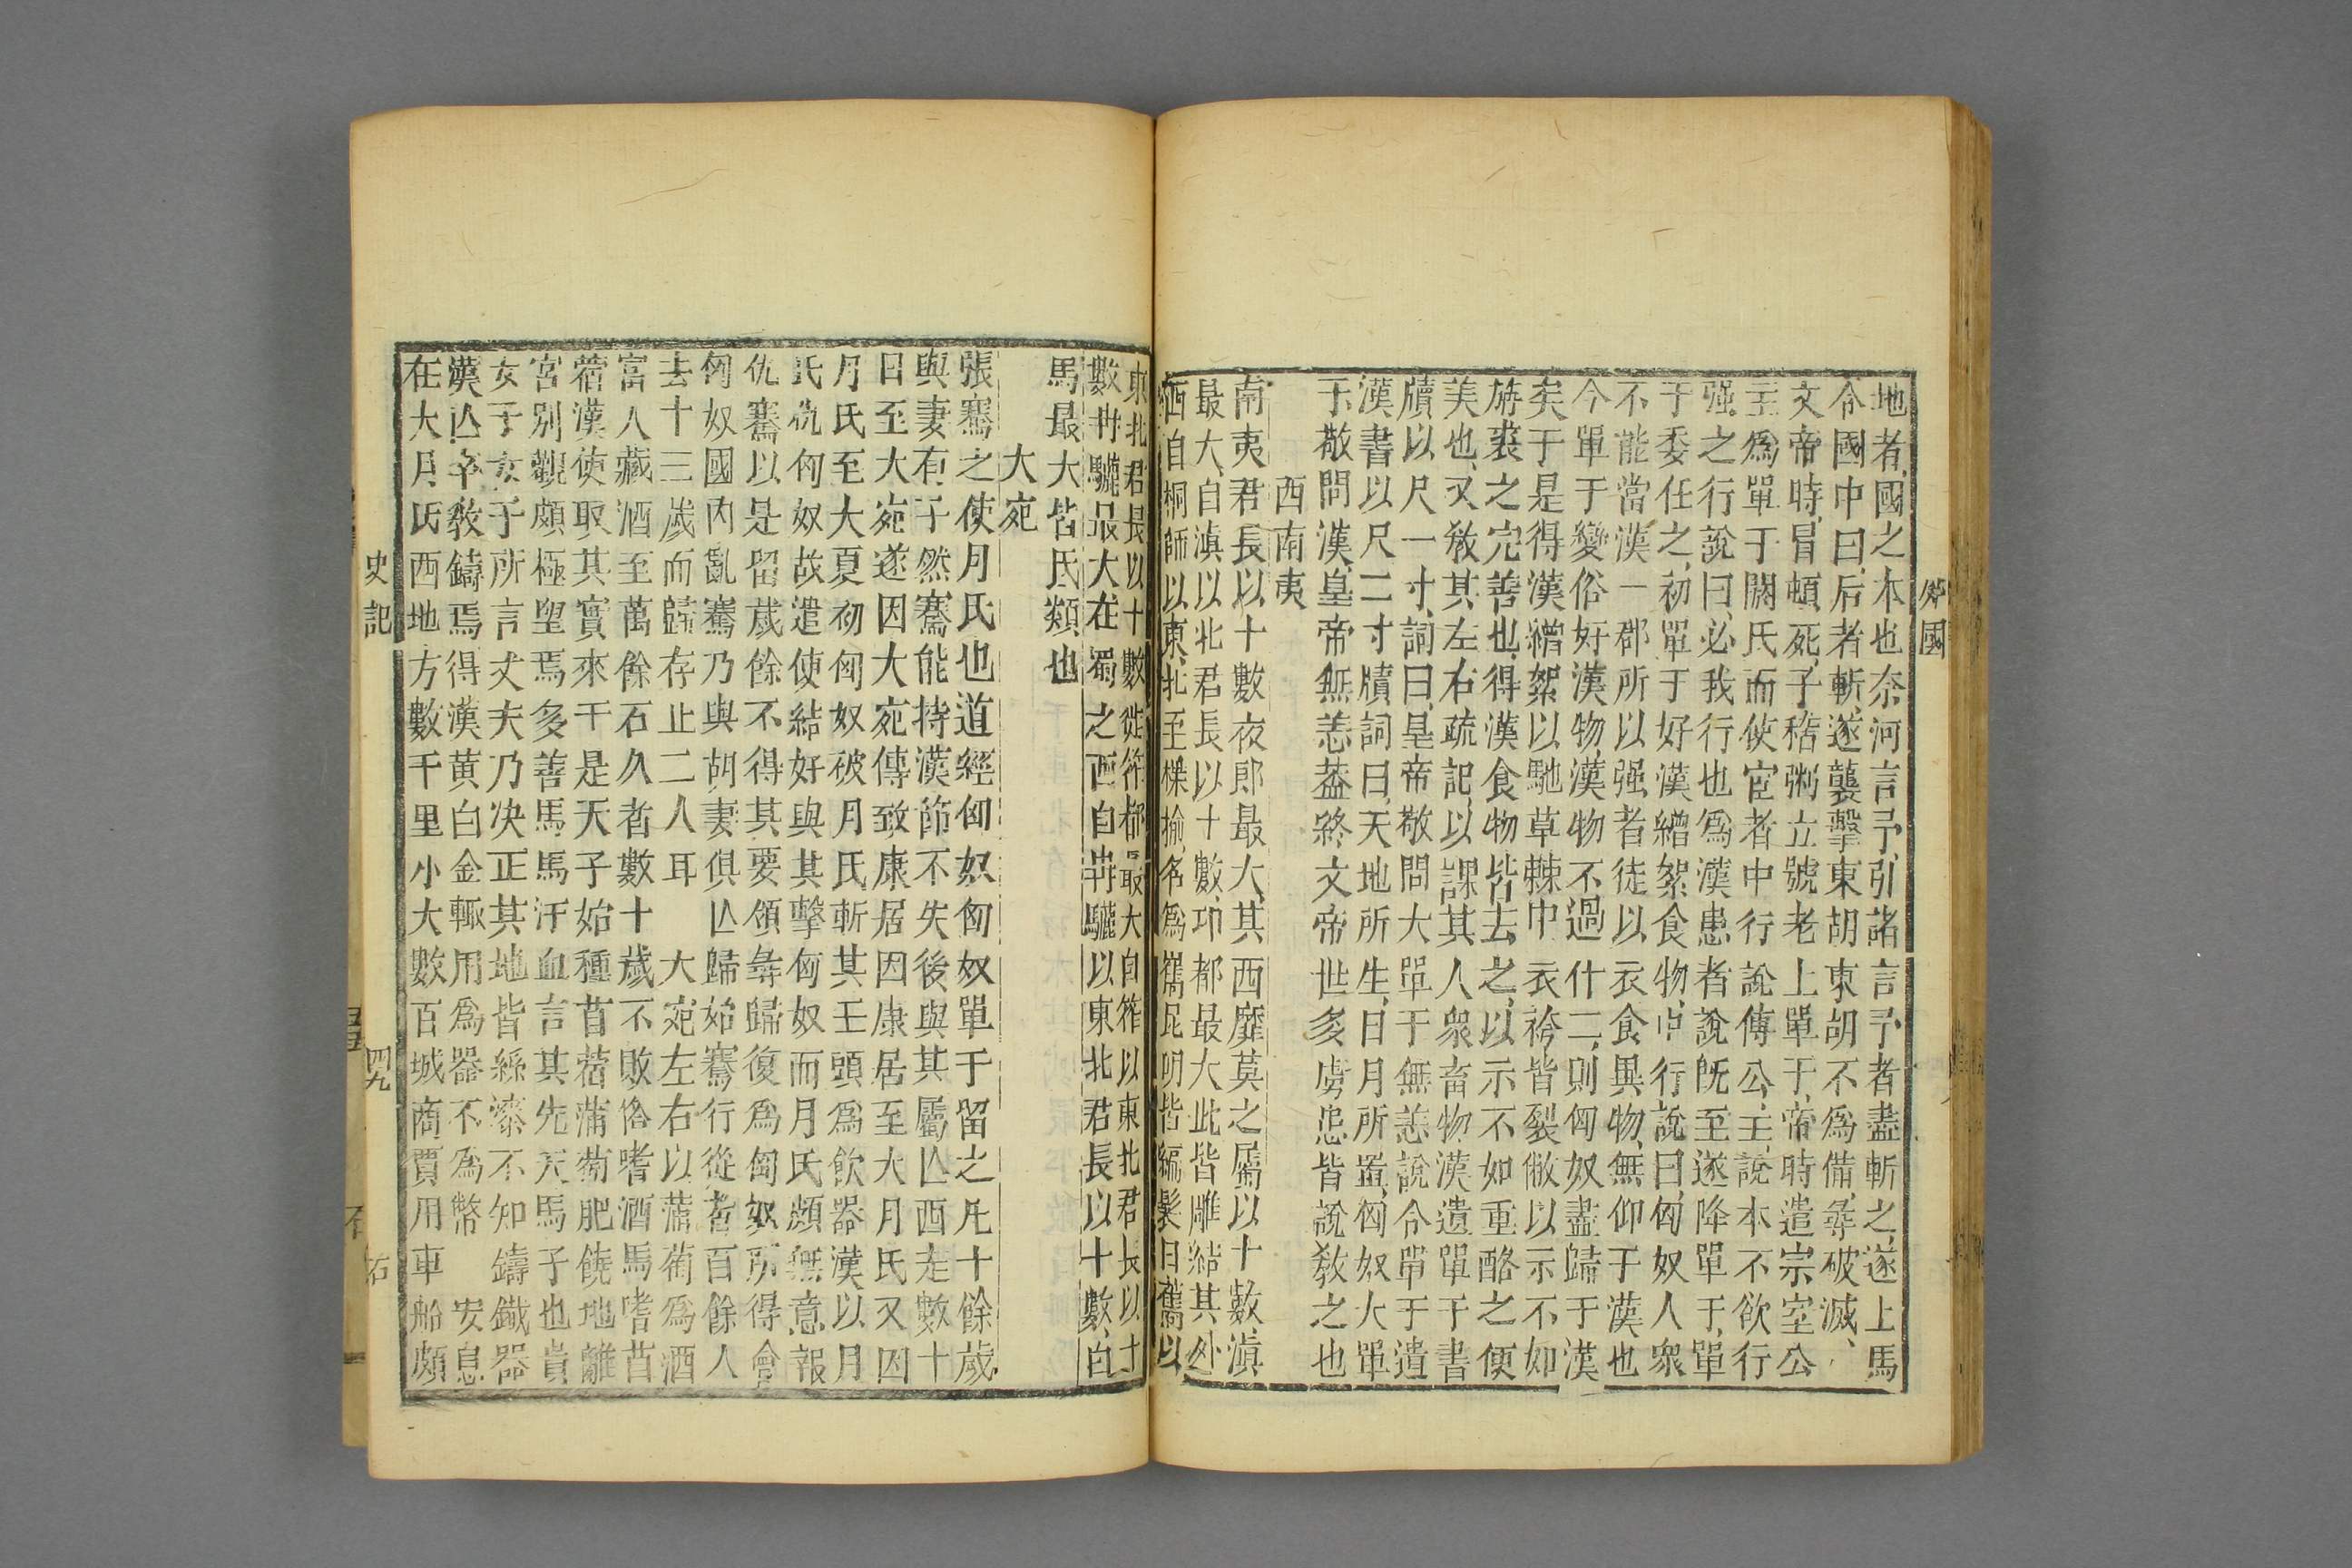 外國
地者國之本也奈河言予引諸言予者盡斬之遂上馬
令國中曰后者斬遂襲擊東胡東胡不爲備尋破滅
文帝時冒頓死子稽粥立號老上單于帝時遣宗室公
主爲單于閼氏而使宦者中行說傅公主說本不欲行
强之行說曰必我行也爲漢患者說既至遂降單于單
于委任之初單于好漢繒絮食物中行說曰匈奴人衆
不能當漢一郡所以强者徒以衣食異物無仰于漢也
今單于變俗好漢物漢物不過什二則匈奴盡歸于漢
矣于是得漢繒絮以馳草棘中衣袴皆裂敝以示不如
旃裘之完善也得漢食物皆去之以示不如重酪之便
美也又教其左右疏記以課其人衆畜物漢遺單于書
牘以尺一寸詞曰皇帝敬問大單于無恙說令單于遣
漢書以尺二寸牘詞曰天地所生日月所置匈奴大單
于敬問漢皇帝無恙葢終文帝世多虜患皆說教之也
西南夷
南夷君長以十數夜郎最大其西靡莫之屬以十數滇
最大自滇以北君長以十數邛都最大此皆雕結其外
西自桐師以東北至楪榆名爲嶲昆明皆編髮自嶲以
東北君長以十數徙筰都最大自筰以東北君長以十
數冉駹最大在蜀之西自冉駹以東北君長以十數白
馬最大皆氐類也
大宛
張騫之使月氏也道經匈奴匈奴單于留之凡十餘歲
與妻有子然騫能持漢節不失後與其屬亾西走數十
日至大宛遂因大宛傳致康居因康居至大月氏又因
月氏至大夏初匈奴破月氏斬其王頭爲飲器漢以月
氏仇匈奴故遣使結好與其擊匈奴而月氏頗無意報
仇騫以是留歲餘不得其要領尋歸復爲匈奴所得會
匈奴國内亂騫乃與胡妻俱亾歸始騫行從者百餘人
去十三歲而歸存止二人耳　大宛左右以蒲萄爲酒
富人藏酒至萬餘石久者數十歲不敗俗嗜酒馬嗜苜
蓿漢使取其實來于是天子始種苜蓿蒲萄肥饒地離
宮別觀頗極望焉多善馬馬汗血言其先天馬子也貴
女子女子所言丈夫乃決正其地皆絲漆不知鑄鐵器
漢亾卒教鑄焉得漢黄白金輒用爲器不爲幣　安息
在大月氏西地方數千里小大數百城商賈用車船頗
史記
四九